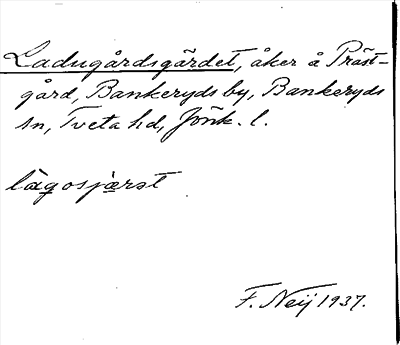 Ladugårdsgärdet, åker å Präst-
gård, Bankeryds by, Bankeryds
sn, Tveta hd, Jönk. l.
lȧgosjærst
F. Neij 1937.